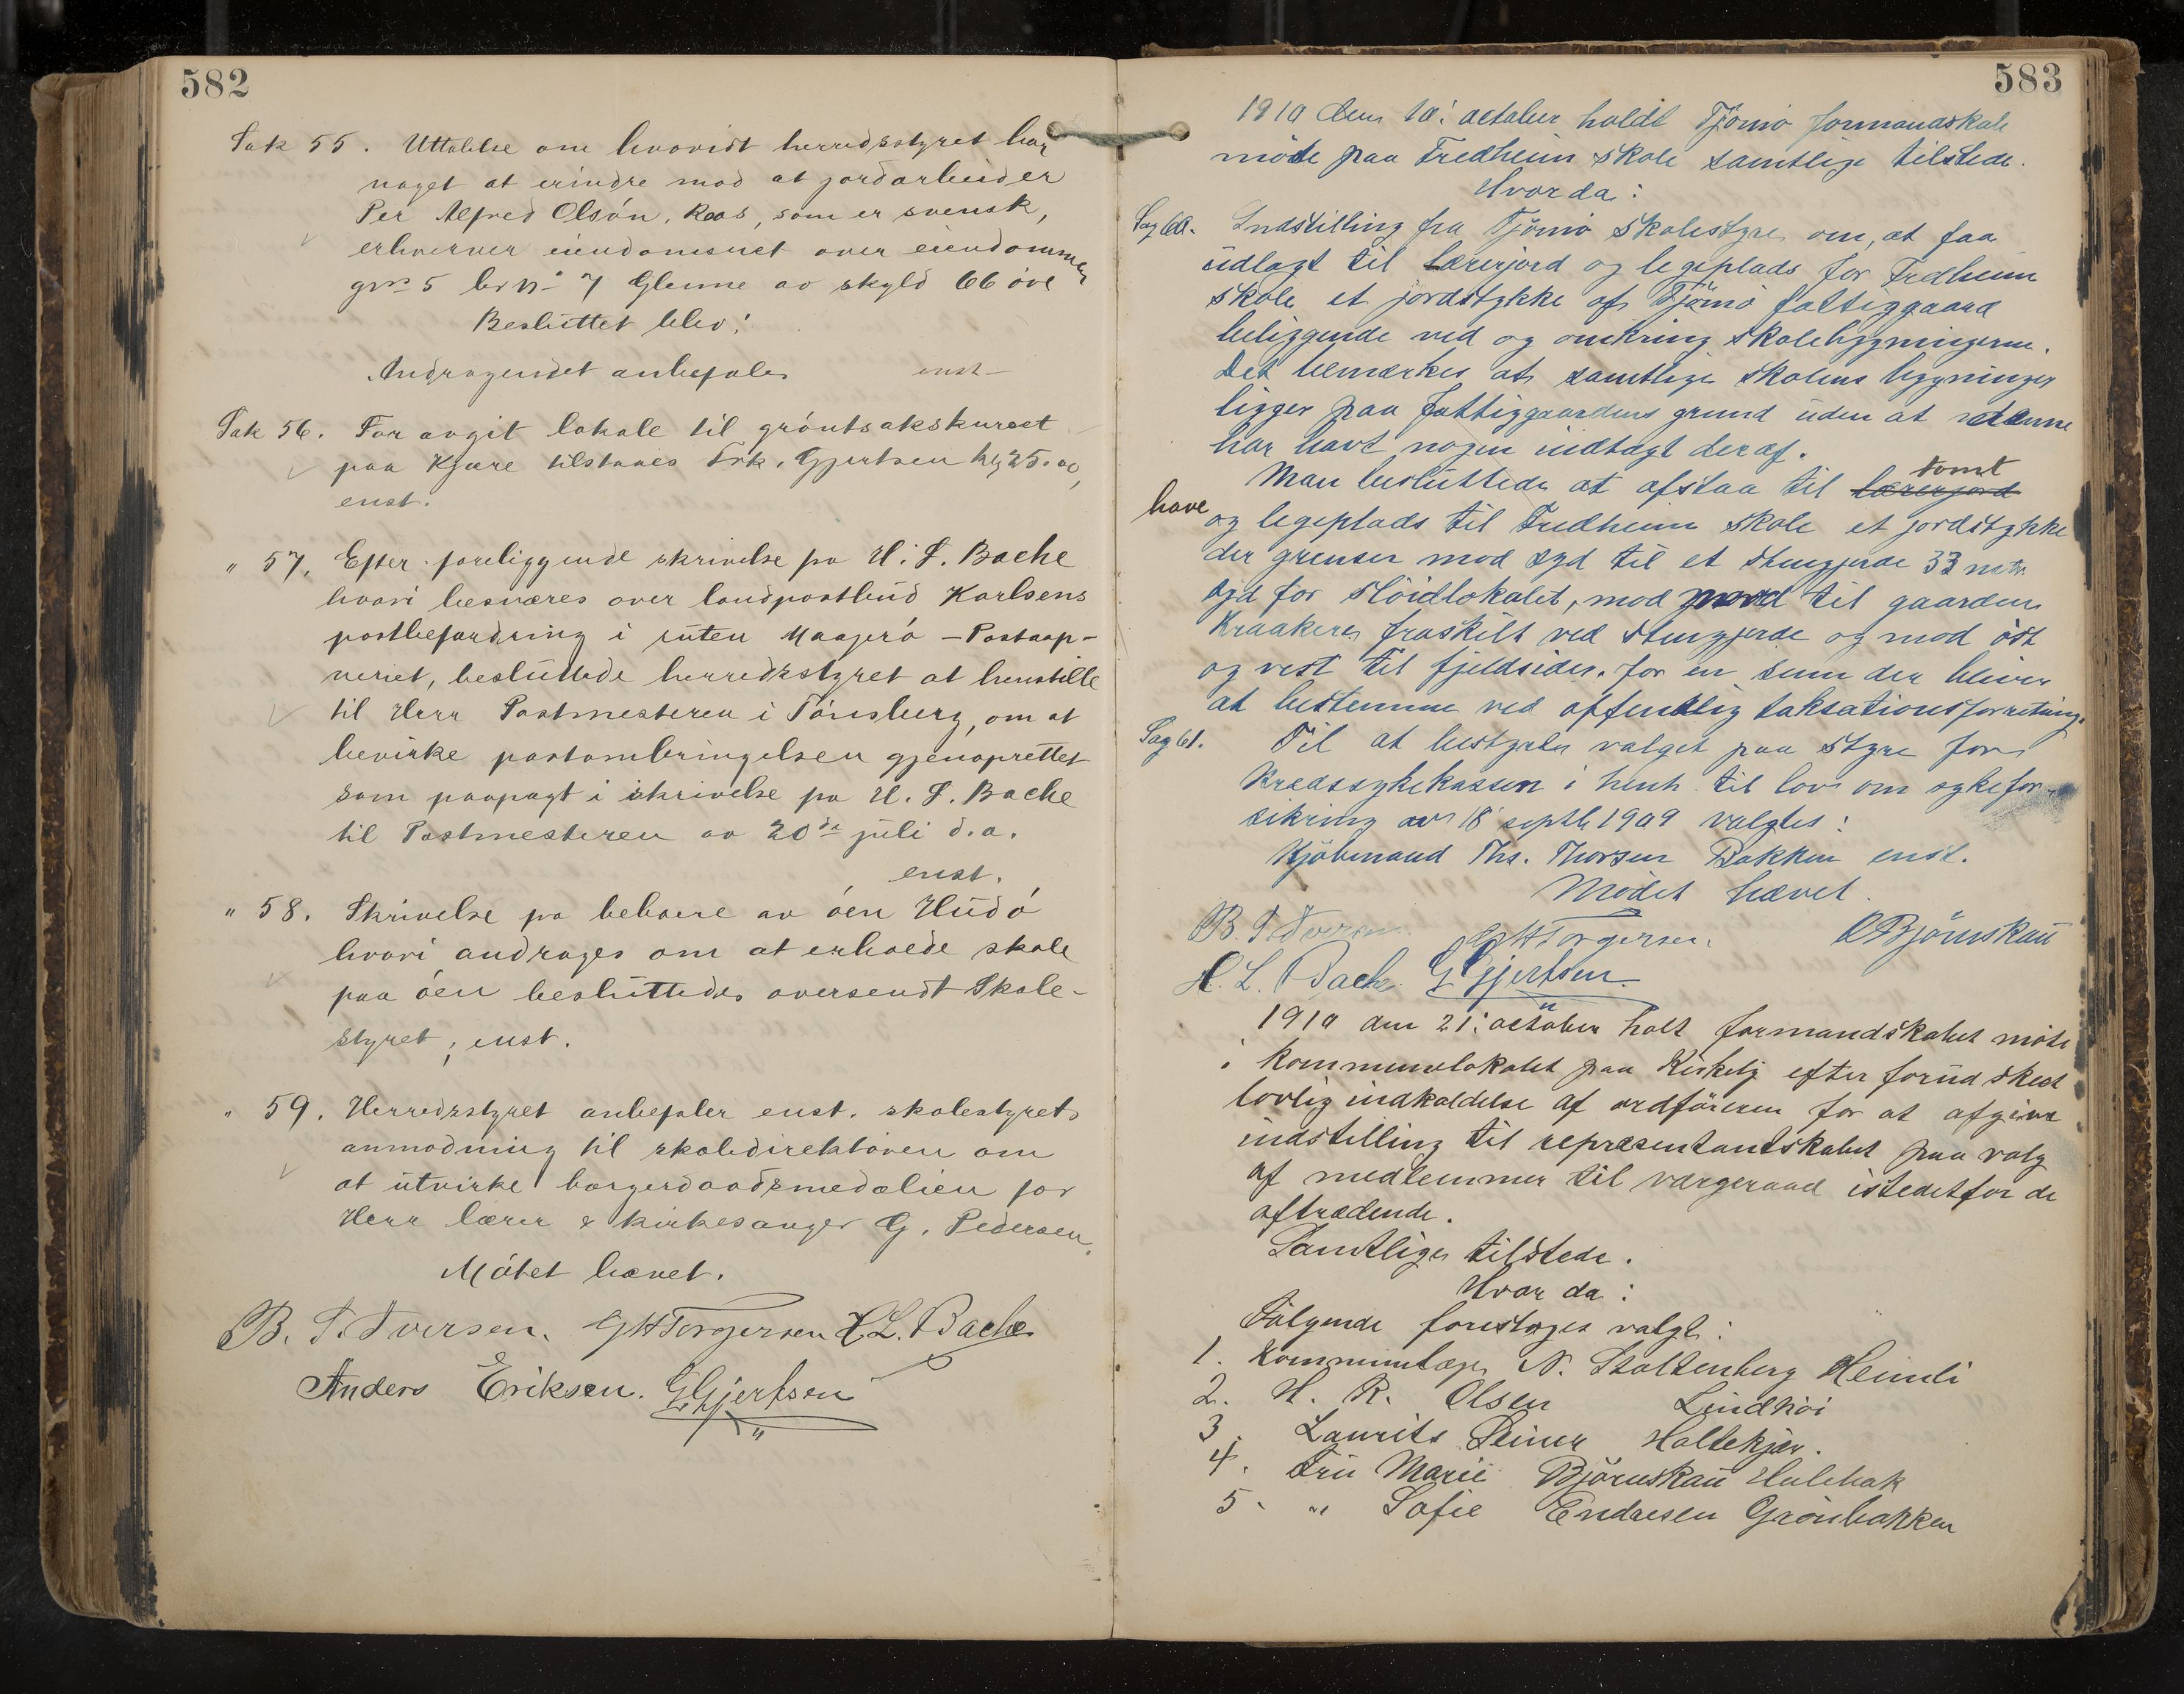 582
Sak 55. Uttalelse om hvorvidt herredsstyret har
noget at erindre mod at jordarbeider
Per Alfred Olsón, Roos, som er svensk,
erhverver eiendomsret over eiendommen
grn 5 br no 7 Glenne av skyld 66 öre
Besluttet blev:
Andragendet anbefales enst
Sak 56. For avgit lokale til gröntsakskurset
paa Kjære tilstaaes Frk. Gjertsen kr 25.00,
enst.
" 57. Efter foreliggende skrivelse fra H. L. Bache
hvori besværes over landpostbud Karlsens
postbefordring i ruten Maagerö - Postaap-
neriet, besluttede herredsstyret at henstille
til Herr Postmesteren i Tönsberg, om at
bevirke postombringelsen gjenoprettet
som paapagt i skrivelse fra H. L. Bache
til Postmesteren av 20de juli d.a.
enst.
" 58. Skrivelse fra beboere av öen Hudö
hvori andrages om at erholde skole
paa öen besluttedes oversendt Skole-
styret; enst.
" 59. Herredsstyret anbefaler enst. skolestyrets
anmodning til skoledirektören om
at utvirke borgerdaadsmedalien for
Herr lærer & kirkesanger G. Pedersen.
Mötet hævet.
B. S. Iversen. G H Torgersen H. L. Bache
Anders Eriksen. G Gjertsen
583
1910 den 10: october holdt Tjömö formandskab
möde paa Fredheim skole samtlige tilstede.
Hvor da:
Sag 60. Indstilling fra Tjömö skolestyre om, at faa
udlagt til lærerjord og legeplads for Fredheim
skole et jordstykke af Tjömö fattiggaard
beliggende ved og omkring skolebygningerne.
Det bemærkes at samtlige skolens bygninger
ligger paa fattiggaardens grund uden at denne
har havt nogen indtægt deraf.
Man besluttede at afstaa til lærerjord tomt
have og legeplads til Fredheim skole et jordstykke
der grenser mod syd til et stengjerde 33 mtr.
syd for slöidlokalet, mod nord til gaarden
Kraakere fraskilt ved stengjerde og mod öst
og vest til fjeldsider. for en sum der bliver
at bestemme ved offentlig taksationsforretning.
Sag 61. Til at bestyre valget paa styre for
Kredssykekassen i henh. til lov om sykefor-
sikring av 18 septb 1909 valgtes:
Kjöbmand Ths. Thorsen Bakken enst.
Mödet hævet.
B. S. Iversen G H Torgersen. O Björnskau
H. L. Bache. G Gjertsen
1910 den 21: october holt formandskabet möte
i kommunelokalet paa Kirkely efter forud skeet
lovlig indkaldelse af ordföreren for at afgive
indstilling til repræsentantskabet paa valg
af medlemmer til vergeraad istedetfor de
aftrædende.
Samtlige tilstede.
Hvor da:
Fölgende forestoges valgt:
1. Kommunelæge N. Stoltenberg Heimli
2. H. R. Olsen Lindhöi
3. Laurits Heimer Holtekjær.
4. Fru Marie Björnskau Hulebak
5. " Sofie Endresen Grönbakken